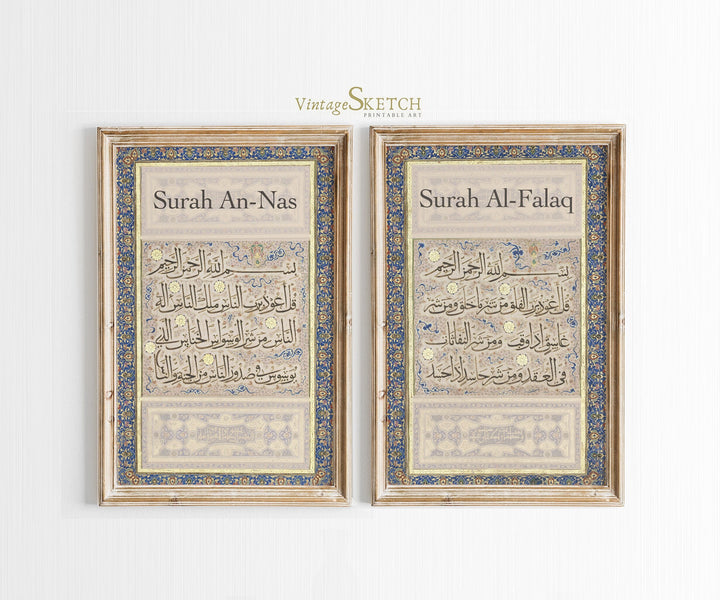 VintageSKETCH
PRINTABLE ART
Surah An-Nas
بسم الله الرحمن الرحيم
قل اعوذ برب الناس ملك الناس اله
الناس من شر الوسواس الخناس الذي
يوسوس في صدور الناس من الجنة والناس
Surah Al-Falaq
بسم الله الرحمن الرحيم
قل اعوذ برب الفلق من شر ما خلق ومن شر
غاسق اذا وقب ومن شر النفاثات
في العقد ومن شر حاسد اذا حسد